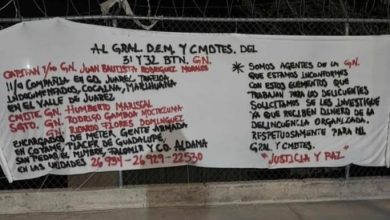 AL GRAL. D.E.M. Y CMDTES. DEL
31 Y 32 BTN. G.N.
CAPITAN 1/O G.N. JUAN BAUTISTA RODRIGUEZ MORALES
11/a COMPAÑIA EN CD. JUAREZ. TRAFICA
INDOCUMENTADOS, COCAINA, MARIHUANA
EN EL VALLE DE JUAREZ
CMDTE G.N. HUMBERTO MARISCAL
SGTO. G.N. RODRIGO GAMBOA MOCTEZUMA
G.N. RICARDO FLORES DOMINGUEZ
ENCARGADOS DE METER GENTE ARMADA
EN COYAME, PLACER DE GUADALUPE
SAN PEDRO, EL PUEBLITO, FALOMIR Y CD. ALDAMA
EN LAS UNIDADES 26934-26929-22530
* SOMOS AGENTES DE LA G.N.
QUE ESTAMOS INCONFORMES
CON ESTOS ELEMENTOS QUE
TRABAJAN PARA LOS DELICUENTES
SOLICITAMOS SE LES INVESTIGUE
YA QUE RECIBEN DINERO DE LA
DELINCUENCIA ORGANIZADA.
RESPETUOSAMENTE PARA MI
GRAL Y CMDTES.
"JUSTICIA Y PAZ"